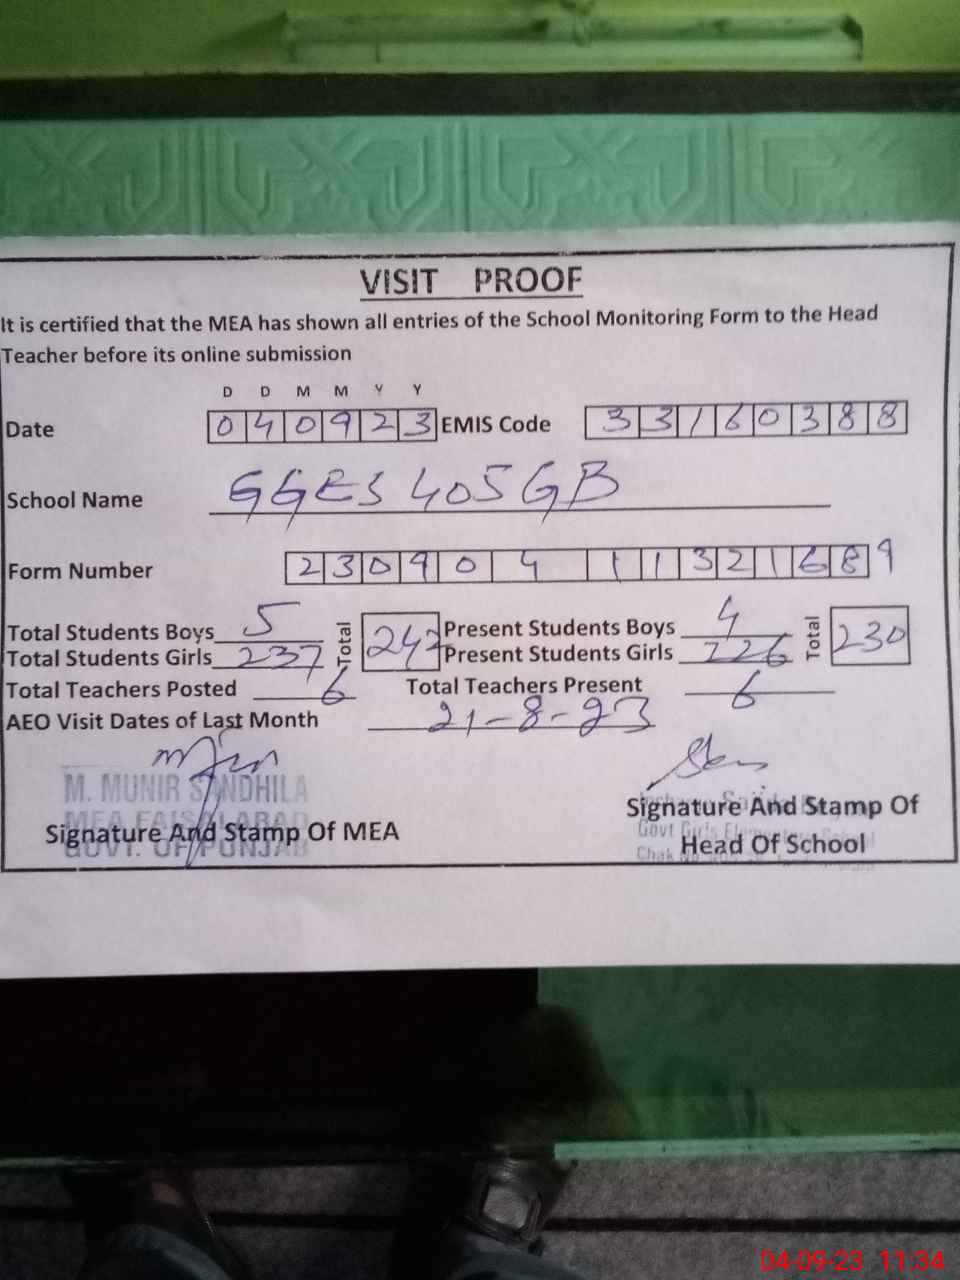 VISIT PROOF
It is certified that the MEA has shown all entries of the School Monitoring Form to the Head
Teacher before its online submission
D D M M Y Y
Date 040923 EMIS Code 33160388
School Name GGES 405 GB
Form Number 23090411321689
Total Students Boys 5 Total 242 Present Students Boys 4 Total 230
Total Students Girls 237 Present Students Girls 226
Total Teachers Posted 6 Total Teachers Present 6
AEO Visit Dates of Last Month 21-8-23
M. MUNIR SANDHILA
MEA FAISALABAD
GOVT. OF PUNJAB
Signature And Stamp Of MEA
Signature And Stamp Of
Head Of School
Govt Girls Elementary School
Chak
04-09-23 11:34